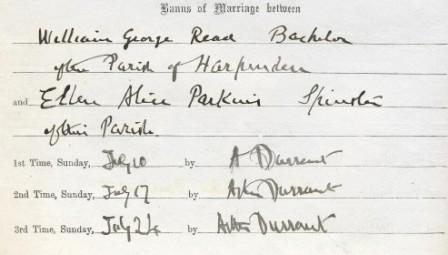 Banns of Marriage between
William George Read Bachelor
of the Parish of Harpenden
and Ellen Alice Parkins Spinster
of this Parish.
1st Time, Sunday, July 10 by A Durrant
2nd Time, Sunday, July 17 by Arthur Durrant
3rd Time, Sunday, July 24 by Arthur Durrant